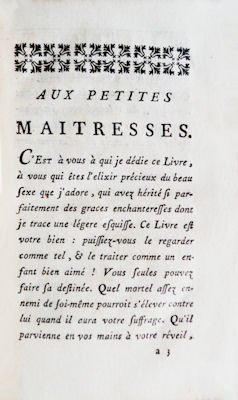 AUX PETITES
MAITRESSES.
C'EST à vous à qui je dédie ce Livre,
à vous qui êtes l'elixir précieux du beau
sexe que j'adore, qui avez hérité si par-
faitement des graces enchanteresses dont
je trace une légere esquisse. Ce Livre est
votre bien : puissiez-vous le regarder
comme tel, & le traiter comme un en-
fant bien aimé ! Vous seules pouvez
faire sa destinée. Quel mortel assez en-
nemi de soi-même pourroit s'élever contre
lui quand il aura votre suffrage. Qu'il
parvienne en vos mains à votre réveil,
a 3